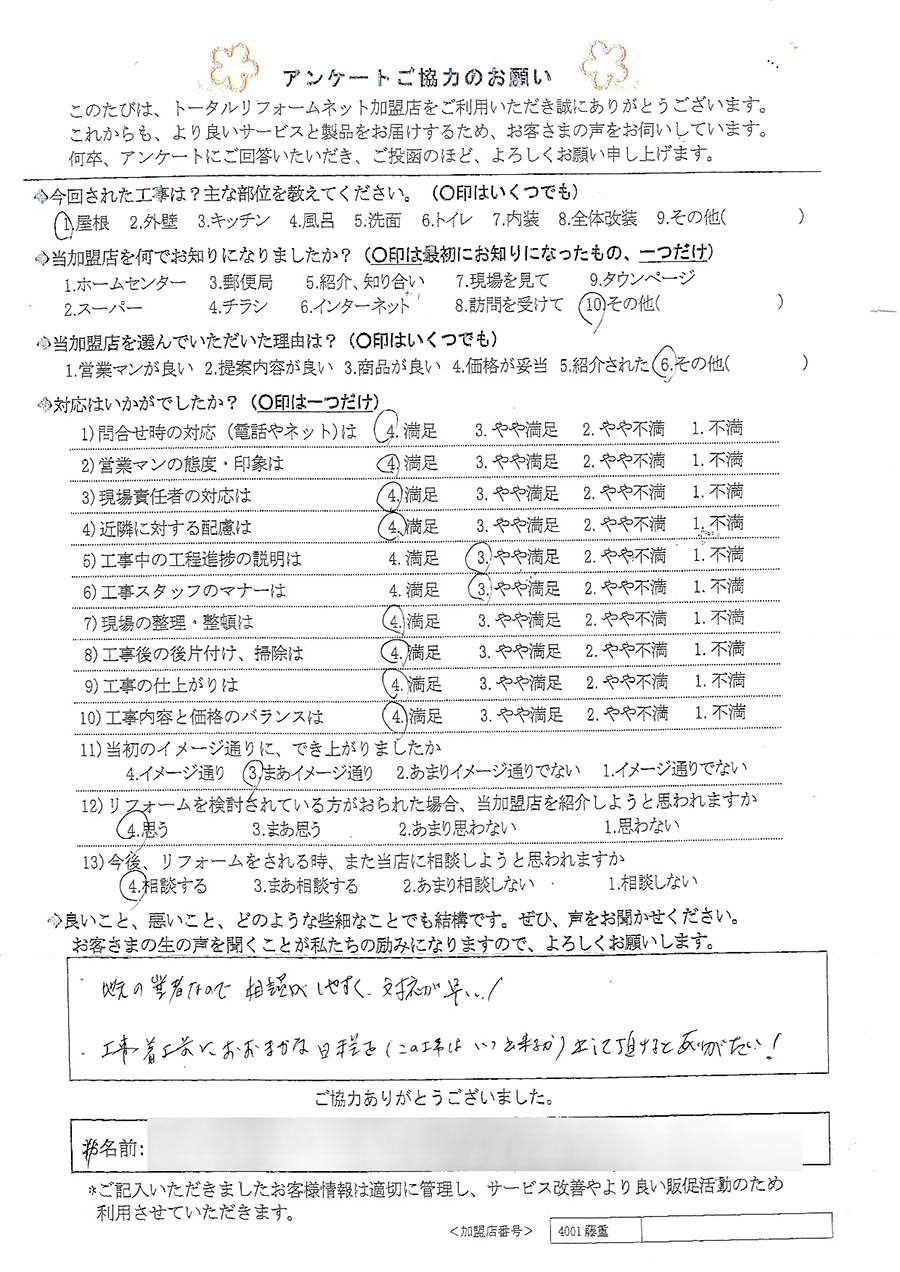 アンケートご協力のお願い
このたびは、トータルリフォームネット加盟店をご利用いただき誠にありがとうございます。
これからも、より良いサービスと製品をお届けするため、お客さまの声をお伺いしています。
何卒、アンケートにご回答いたいだき、ご投函のほど、よろしくお願い申し上げます。
今回された工事は？主な部位を教えてください。（〇印はいくつでも）
1.屋根 2.外壁 3.キッチン 4.風呂 5.洗面 6.トイレ 7.内装 8.全体改装 9.その他( )
当加盟店を何でお知りになりましたか？（〇印は最初にお知りになったもの、一つだけ）
1.ホームセンター 3.郵便局 5.紹介、知り合い 7.現場を見て 9.タウンページ
2.スーパー 4.チラシ 6.インターネット 8.訪問を受けて 10.その他( )
当加盟店を選んでいただいた理由は？（〇印はいくつでも）
1.営業マンが良い 2.提案内容が良い 3.商品が良い 4.価格が妥当 5.紹介された 6.その他( )
対応はいかがでしたか？（〇印は一つだけ）
1)問合せ時の対応（電話やネット）は 4.満足 3.やや満足 2.やや不満 1.不満
2)営業マンの態度・印象は 4.満足 3.やや満足 2.やや不満 1.不満
3)現場責任者の対応は 4.満足 3.やや満足 2.やや不満 1.不満
4)近隣に対する配慮は 4.満足 3.やや満足 2.やや不満 1.不満
5)工事中の工程進捗の説明は 4.満足 3.やや満足 2.やや不満 1.不満
6)工事スタッフのマナーは 4.満足 3.やや満足 2.やや不満 1.不満
7)現場の整理・整頓は 4.満足 3.やや満足 2.やや不満 1.不満
8)工事後の後片付け、掃除は 4.満足 3.やや満足 2.やや不満 1.不満
9)工事の仕上がりは 4.満足 3.やや満足 2.やや不満 1.不満
10)工事内容と価格のバランスは 4.満足 3.やや満足 2.やや不満 1.不満
11)当初のイメージ通りに、でき上がりましたか
4.イメージ通り 3.まあイメージ通り 2.あまりイメージ通りでない 1.イメージ通りでない
12)リフォームを検討されている方がおられた場合、当加盟店を紹介しようと思われますか
4.思う 3.まあ思う 2.あまり思わない 1.思わない
13)今後、リフォームをされる時、また当店に相談しようと思われますか
4.相談する 3.まあ相談する 2.あまり相談しない 1.相談しない
良いこと、悪いこと、どのような些細なことでも結構です。ぜひ、声をお聞かせください。
お客さまの生の声を聞くことが私たちの励みになりますので、よろしくお願いします。
・地元の業者なので 相談がしやすく、対応が早い!
・工事着工前におおまかな日程を(この工事はいつ出来るか)出して頂けると ありがたい!
ご協力ありがとうございました。
お名前:
*ご記入いただきましたお客様情報は適切に管理し、サービス改善やより良い販促活動のため
利用させていただきます。
<加盟店番号> 4001藤重